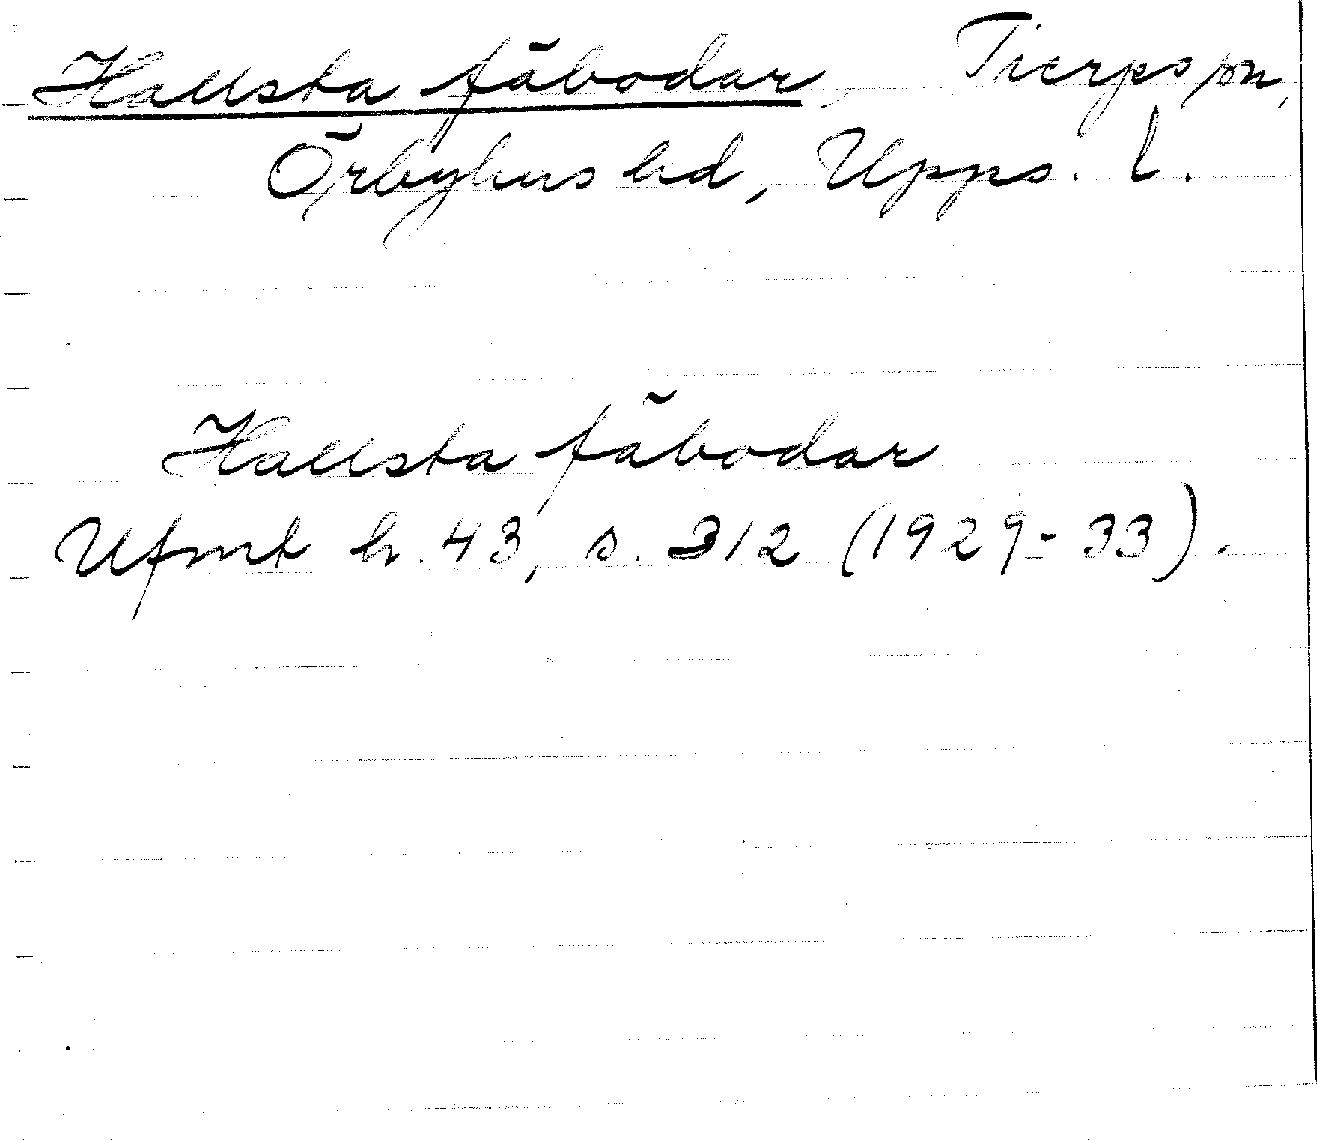 Hallsta fäbodar, Tierps sn,
Örbyhus hd, Upps. l.
Hallsta fäbodar
Ufmt h. 43, s. 312 (1929-33).